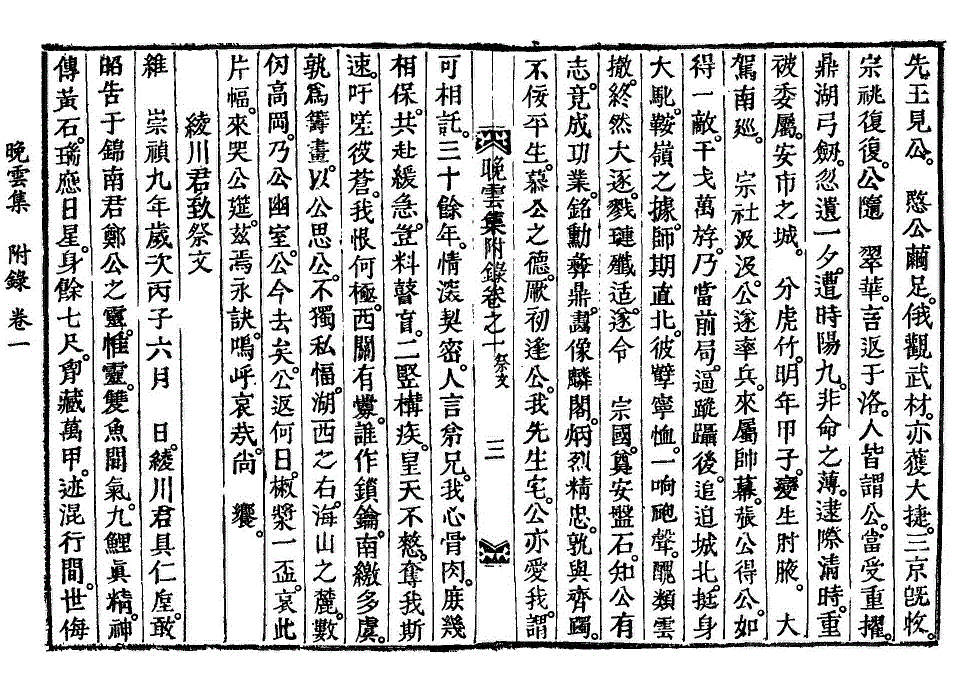 先王見公。 愍公繭足。俄觀武材。亦獲大捷。三京旣收。
宗祧復復。公隨 翠華。言返于洛。人皆謂公。當受重擢。
鼎湖弓劔。忽遺一夕。遭時陽九。非命之薄。逮際淸時。重
被委屬。安市之城。 分虎竹。明年甲子。變生肘腋。 大
駕南廵。 宗社汲汲。公遂率兵。來屬帥幕。張公得公。如
得一敵。干戈萬㫄。乃當前局。逼蹤躡後。追追城北。挺身
大馳。鞍嶺之據。師期直北。彼孽寧恤。一响砲聲。醜類雲
撤。終然大逐。戮璉殲适。遂令 宗國。奠安盤石。知公有
志。竟成功業。銘勳彜鼎。畵像麟閣。炳烈精忠。孰與齊躅。
不佞平生。慕公之德。厥初逢公。我先生宅。公亦愛我。謂
晩雲集附錄卷之十 祭文 三
可相託。三十餘年。情深契密。人言爺兄。我心骨肉。庻幾
相保。共赴緩急。豈料瞽盲。二竪構疾。皇天不憗。奪我斯
速。吁嗟彼蒼。我恨何極。西關有釁。誰作鎖鑰。南徼多虞。
孰爲籌畫。以公思公。不獨私愊。湖西之右。海山之麓。數
仞高岡。乃公幽室。公今去矣。公返何日。椒漿一盃。哀此
片幅。來哭公筵。玆焉永訣。嗚呼哀哉。尙 饗。
綾川君致祭文
維 崇禎九年歲次丙子六月 日。綾川君具仁垕。敢
昭告于錦南君鄭公之靈。惟靈。雙魚間氣。九鯉眞精。神
傳黃石。瑞應日星。身餘七尺。胷藏萬甲。迹混行間。世侮
晩雲集 附錄 卷一